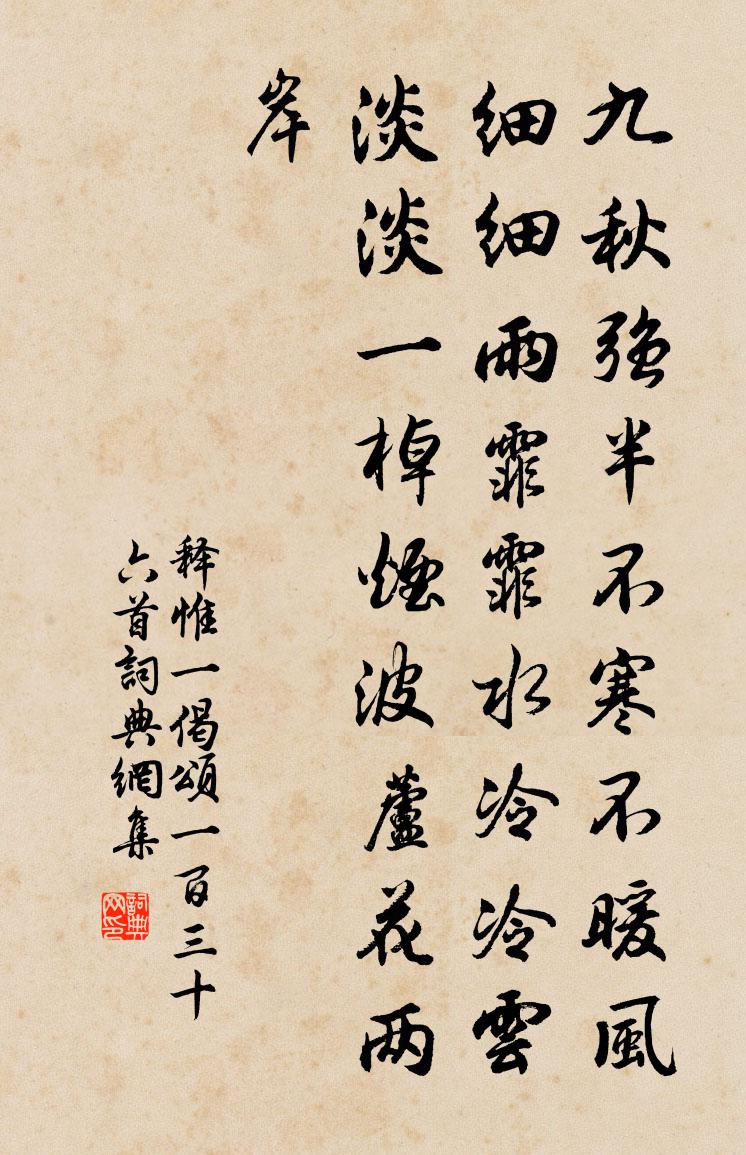 九秋強半不寒不暖風
細細雨霏霏水冷冷雲
淡淡一棹煙波蘆花两
岸
释惟一偈頌一百三十
六首詞典網集
詞典网印